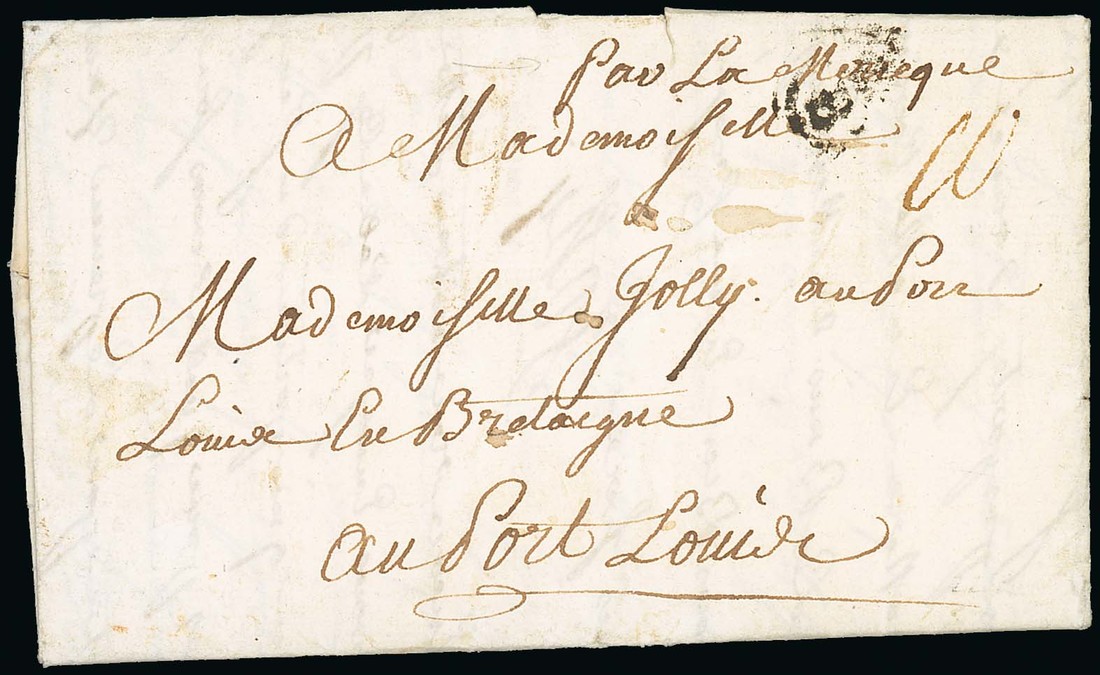 Par La
A Mademoiselle
Mademoiselle Jolly. au Port
Louis En Bretaigne
au Port Louis